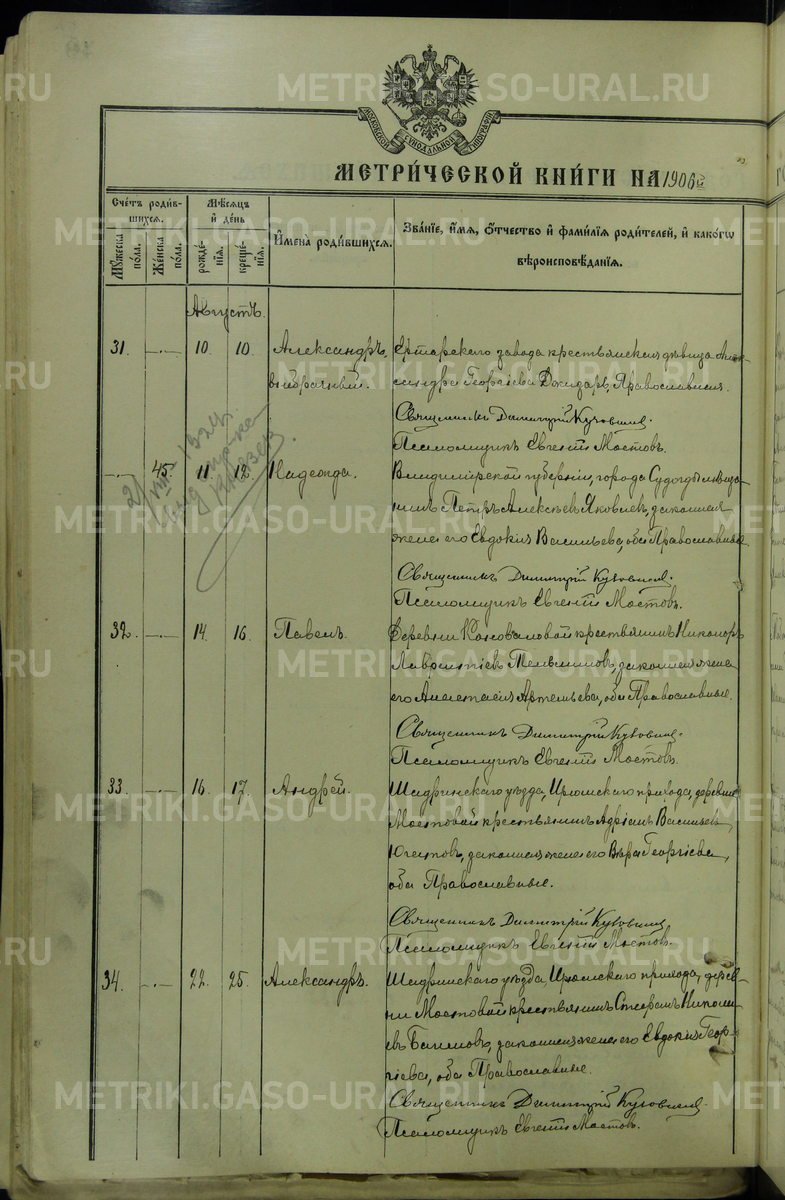 МОСКОВСКОЙ СѴНОДАЛЬНОЙ ТИПОГРАФІИ
МЕТРИ́ЧЕСКОЙ КНИ́ГИ НА 1906й
Сче́тъ роди́в-
шихсѧ.
Мꙋ́жеска по́ла.
Же́нска по́ла.
Мѣ́сѧцъ
и҆ де́нь
рожде́-
нїѧ.
креще́-
нїѧ.
И҆мена̀ роди́вшихсѧ.
Зва́нїе, и҆́мѧ, ѻ҆́тчество и҆ фами́лїѧ роди́телей, и҆ како́гѡ
вѣроисповѣ́данїѧ.
Августъ.
31. —.— 10. 10. Александръ, Ертарскаго завода крестьянская дѣвица Алек-
внѣбрачный. сандра Георгіева, Православная.
Священникъ Димитрій Кузовниковъ.
Псаломщикъ Евгеній Мостовъ.
—.— 45. 11. 12. Надежда. Владимірской губерніи, города Судогды мѣща-
нинъ Петръ Алексѣевъ Яковлевъ, законная
жена его Евдокія Васильева, оба Православные.
Священникъ Димитрій Кузовниковъ.
Псаломщикъ Евгеній Мостовъ.
32. —.— 14. 16. Павелъ. Деревни крестьянинъ Никаноръ
Лаврентіевъ, законная жена
его Анастасія Артемьева, оба Православные.
Священникъ Димитрій Кузовниковъ.
Псаломщикъ Евгеній Мостовъ.
33. —.— 16. 17. Андрей. Шадринскаго уѣзда, Ирюмскаго прихода, деревни
Мостовой крестьянинъ Адріанъ Васильевъ
законная жена его Вѣра Георгіева,
оба Православные.
Священникъ Димитрій Кузовниковъ.
Псаломщикъ Евгеній Мостовъ.
34. —.— 22. 25. Александръ. Шадринскаго уѣзда, Ирюмскаго прихода, дерев-
ни Мостовой крестьянинъ Стефанъ Никола-
евъ, законная жена его Евдокія Геор-
гіева, оба Православные.
Священникъ Димитрій Кузовниковъ.
Псаломщикъ Евгеній Мостовъ.
METRIKI.GASO-URAL.RU